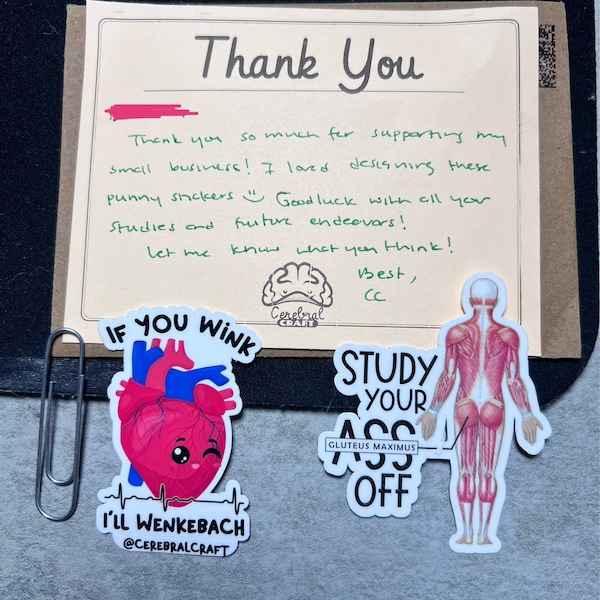 Thank You
Thank you so much for supporting my
small business! I loved designing these
punny stickers Good luck with all your
studies and future endeavors!
Let me know what you think!
Best,
CC
Cerebral
CRAFT
IF YOU WINK
I'LL WENKEBACH
@CEREBRALCRAFT
STUDY
YOUR
ASS
GLUTEUS MAXIMUS
OFF